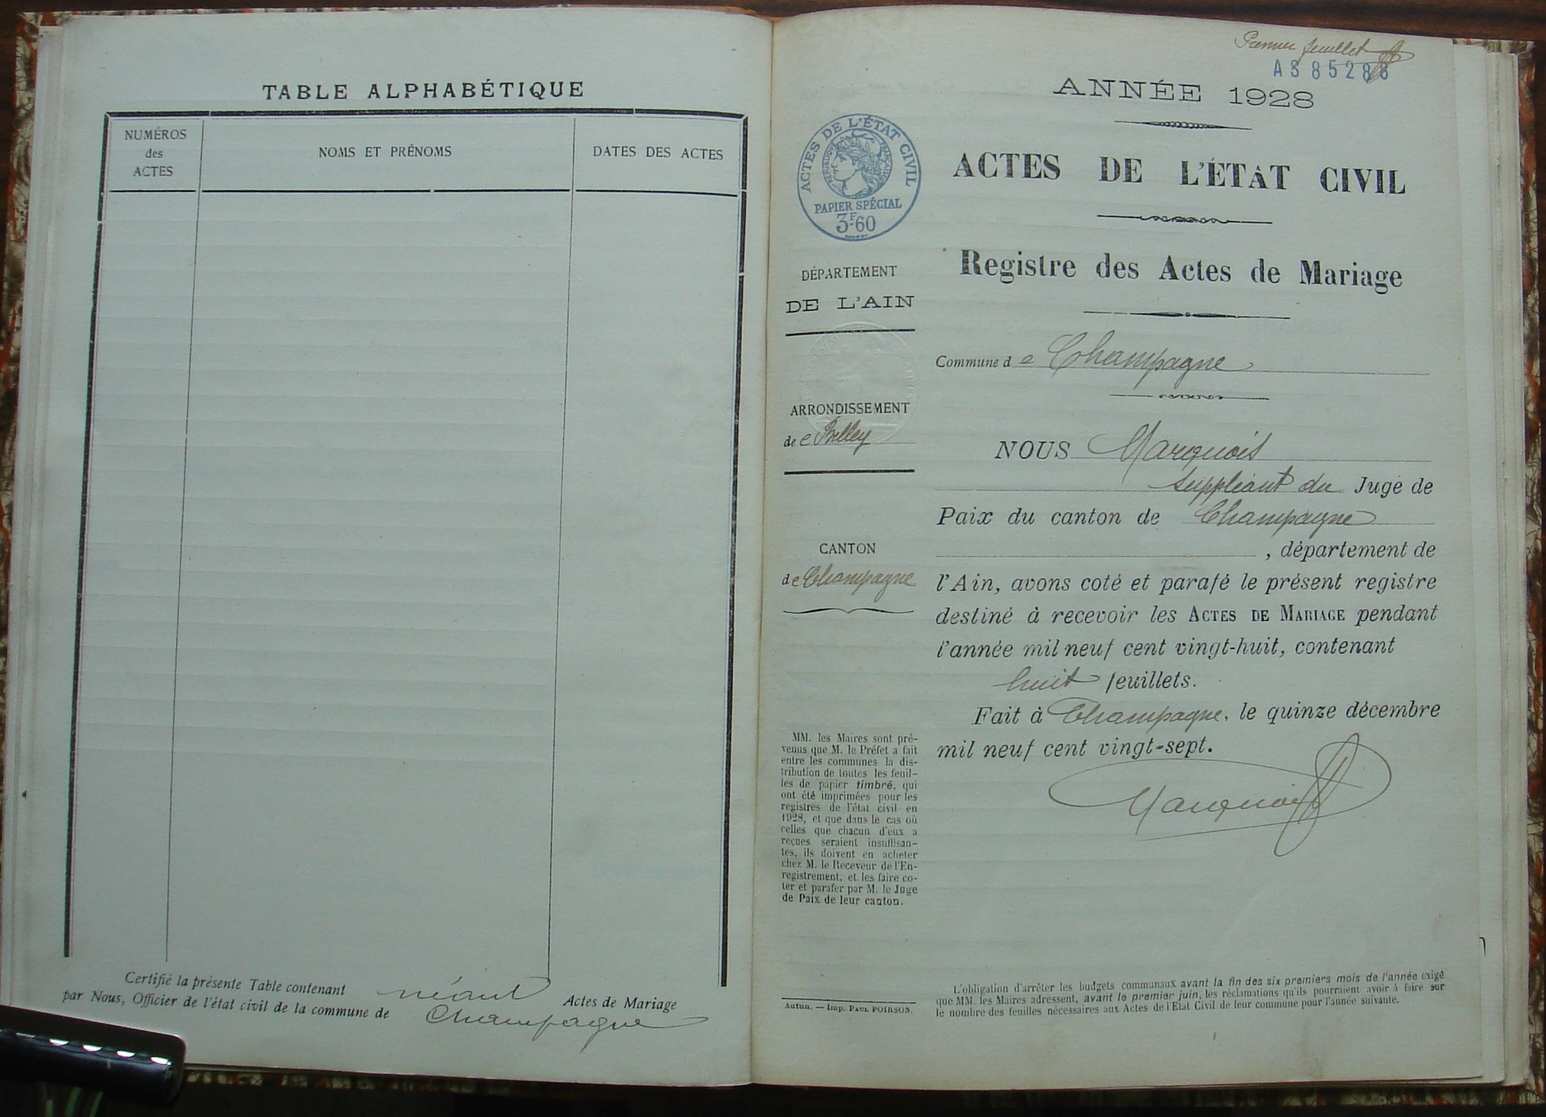 TABLE ALPHABÉTIQUE
NUMÉROS
des
ACTES
NOMS ET PRÉNOMS
DATES DES ACTES
Certifié la présente Table contenant néant Actes de Mariage
par Nous, Officier de l'état civil de la commune de Champagne
Premier feuillet
ANNÉE 1928
ACTES DE L'ÉTAT CIVIL
PAPIER SPÉCIAL
3F.60
ACTES DE L'ÉTAT CIVIL
Registre des Actes de Mariage
DÉPARTEMENT
DE L'AIN
ARRONDISSEMENT
de Belley
CANTON
de Champagne
MM. les Maires sont pré-
venus que M. le Préfet a fait
entre les communes la dis-
tribution de toutes les feuil-
les de papier timbré, qui
ont été imprimées pour les
registres de l'état civil en
1928, et que dans le cas où
celles que chacun d'eux a
reçues seraient insuffisan-
tes, ils doivent en acheter
chez M. le Receveur de l'En-
registrement, et les faire co-
ter et parafer par M. le Juge
de Paix de leur canton.
Autun. — Imp. PAUL POIRSON.
Commune de Champagne
NOUS Marquois
Suppléant du Juge de
Paix du canton de Champagne
, département de
l'Ain, avons coté et parafé le présent registre
destiné à recevoir les ACTES DE MARIAGE pendant
l'année mil neuf cent vingt-huit, contenant
huit feuillets.
Fait à Champagne, le quinze décembre
mil neuf cent vingt-sept.
Marquois
L'obligation d'arrêter les budgets communaux avant la fin des six premiers mois de l'année exige
que MM. les Maires adressent, avant le premier juin, les réclamations qu'ils pourraient avoir à faire sur
le nombre des feuilles nécessaires aux Actes de l'État Civil de leur commune pour l'année suivante.